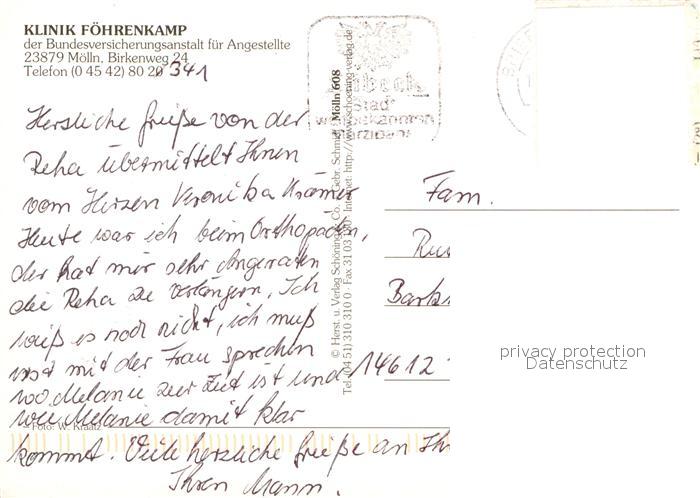 KLINIK FÖHRENKAMP
der Bundesversicherungsanstalt für Angestellte
23879 Mölln. Birkenweg 24
Telefon (0 45 42) 80 20 341
Herzliche Grüße von der
Reha übermittelt Ihnen
vom Herzen Veronika Krämer
Heute war ich beim Orthopäden,
der hat mir sehr angeraten
die Reha zu verlängern. Ich
weiß es noch nicht, ich muß
erst mit der Frau sprechen
wo Melanie zur Zeit ist und
wie Melanie damit klar
kommt. Viele herzliche Grüße an Ihr
Ihren Mann.
Foto: W. Kraatz
© Herst. u. Verlag Schöning & Co. + Gebr. Schmidt Mölln 608
Tel. (04 51) 310 310 0 · Fax 31 03 Internet: http://www.schoening-verlag.de
Stadt
Marzipans
Fam.
Rus
Bark
14612
privacy protection
Datenschutz